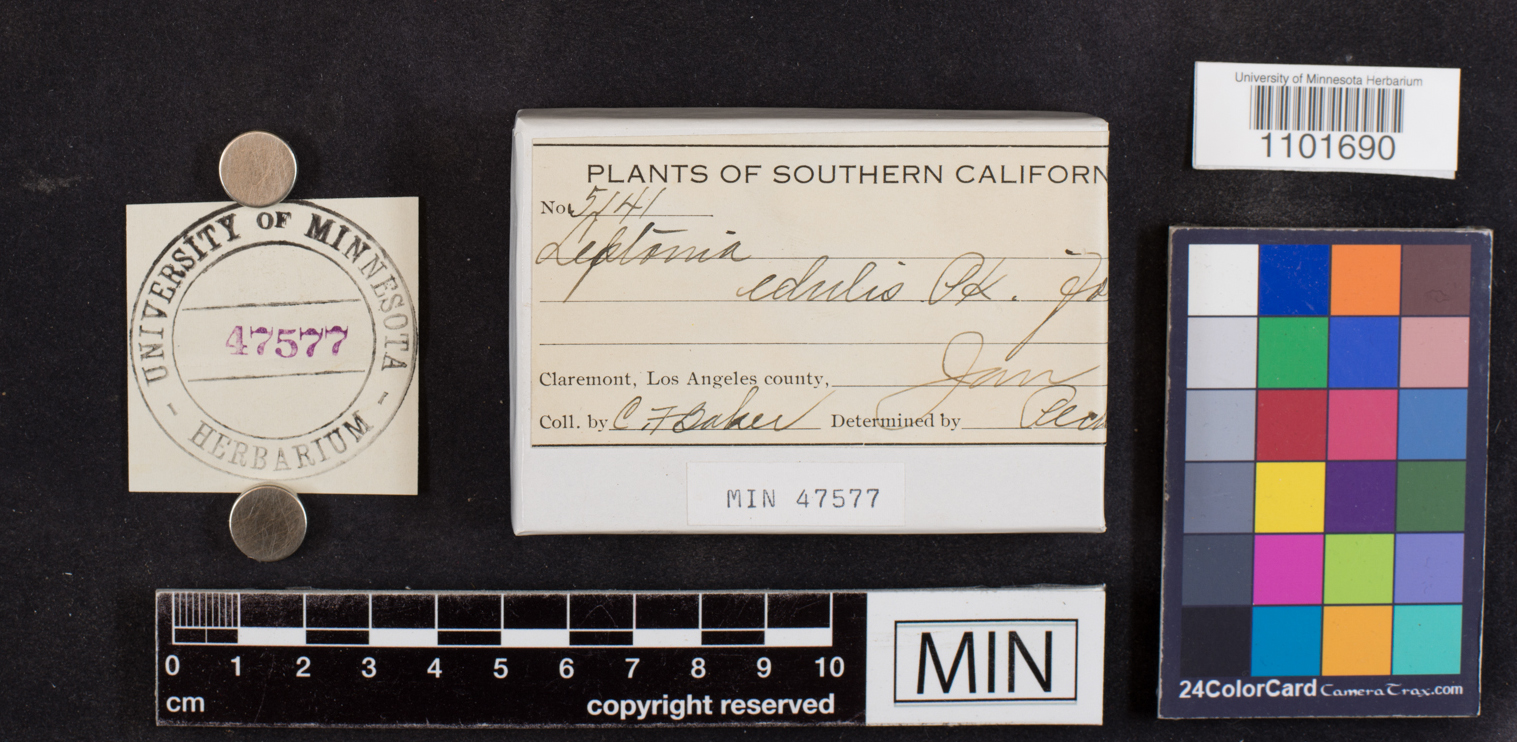 UNIVERSITY OF MINNESOTA
47577
- HERBARIUM -
PLANTS OF SOUTHERN CALIFORN
No. 5141
Leptonia
edulis Pk.
Claremont, Los Angeles county, Jan
Coll. by C F Baker Determined by Peck
MIN 47577
University of Minnesota Herbarium
1101690
0 1 2 3 4 5 6 7 8 9 10
cm
copyright reserved
MIN
24ColorCard CameraTrax.com